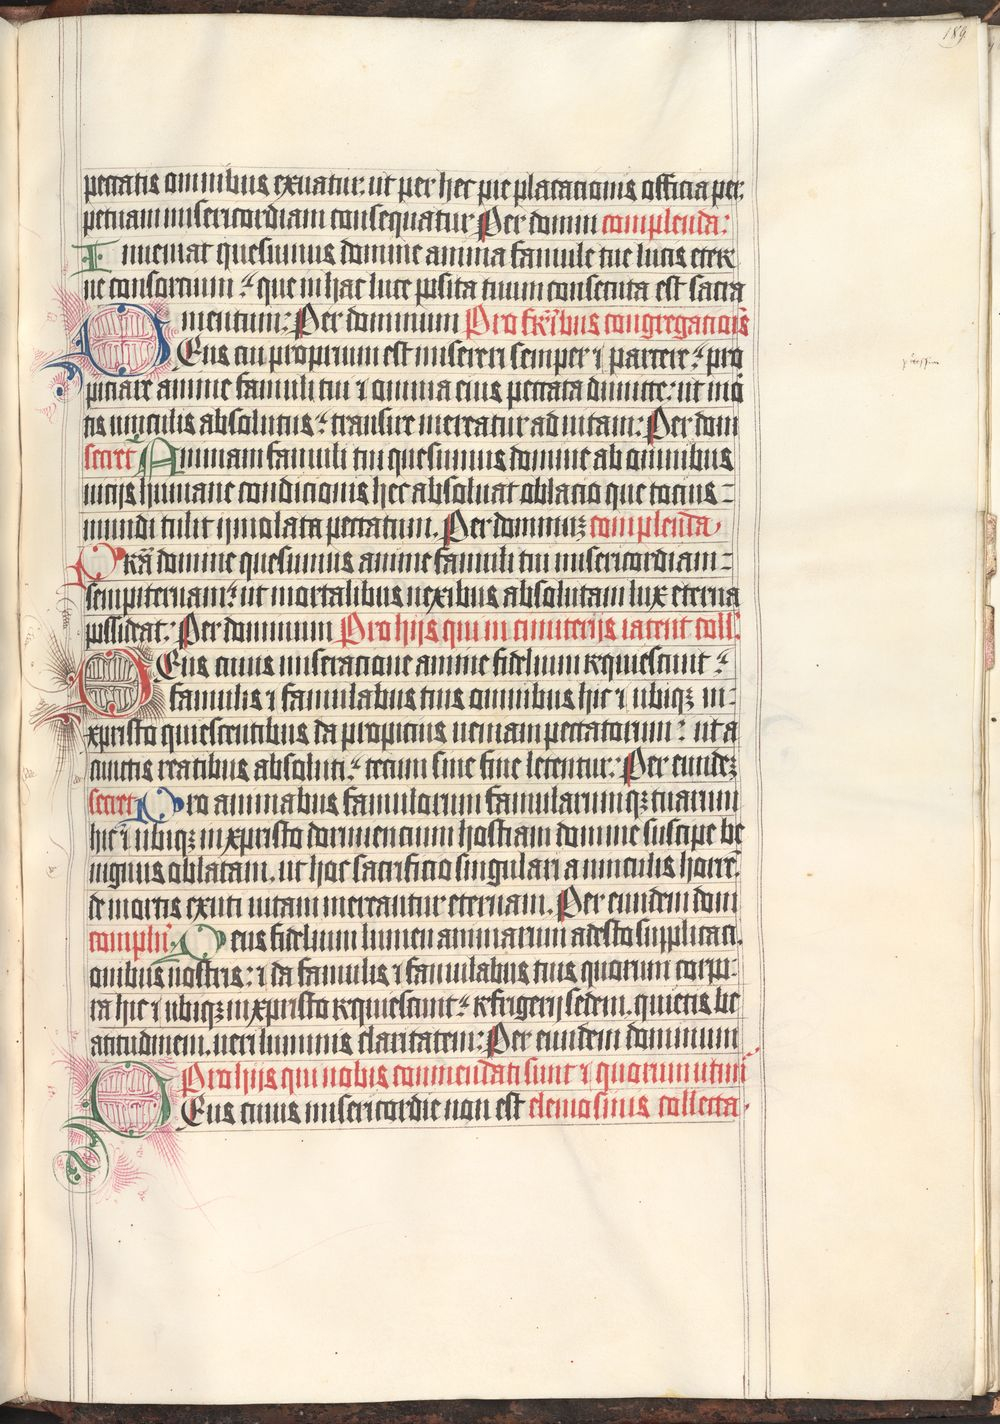 189
peccatis omnibus exuatur: ut per hec pie placationis officia per
petuam misericordiam consequatur Per domin complenda:
Inueniat quesumus domine anima famule tue lucis eter
ne consortium: que in hac luce posita tuum consecuta est sacra
mentum: Per dominum Pro fr̄ibus congregacionis
Deus cui proprium est misereri semper ⁊ parcere: pro
piciare anime famuli tui ⁊ omnia eius peccata dimitte: ut mor
tis uinculis absolutus: transire mereatur ad uitam: Per dom
secret Animam famuli tui quesumus domine ab omnibus
uicijs humane condicionis hec absoluat oblacio que tocius
mundi tulit ymolata peccatum. Per dominuꝫ complenda
Orā domine quesumus anime famuli tui misericordiam
sempiternam: ut mortalibus nexibus absolutam lux eterna
possideat: Per dominum Pro hijs qui in cimiterijs iacent coll:
Deus cuius miseracione anime fidelium requiescunt:
famulis ⁊ famulabus tuis omnibus hic ⁊ ubiqꝫ in
xpristo quiescentibus da propicius ueniam peccatorum: ut a
cunctis reatibus absoluti: tecum sine fine letentur: Per eundeꝫ
secret Pro animabus famulorum famularumqꝫ tuarum
hic ⁊ ubiqꝫ in xpristo dormiencium hostiam domine suscipe be
nignus oblatam. ut hoc sacrificio singulari a uinculis horre
de mortis exuti uitam mereantur eternam. Per eundem dom
complēn Deus fidelium lumen animarum adesto supplicaci
onibus nostris: ⁊ da famulis ⁊ famulabus tuis quorum corpo
ra hic ⁊ ubiqꝫ in xpristo requiescunt: refrigerij sedem. quietis be
atitudinem. ueri luminis claritatem: Per eundem dominum
Pro hijs qui nobis commendati sunt ⁊ quorum utimur
Deus cuius misericordie non est elemosinis collecta